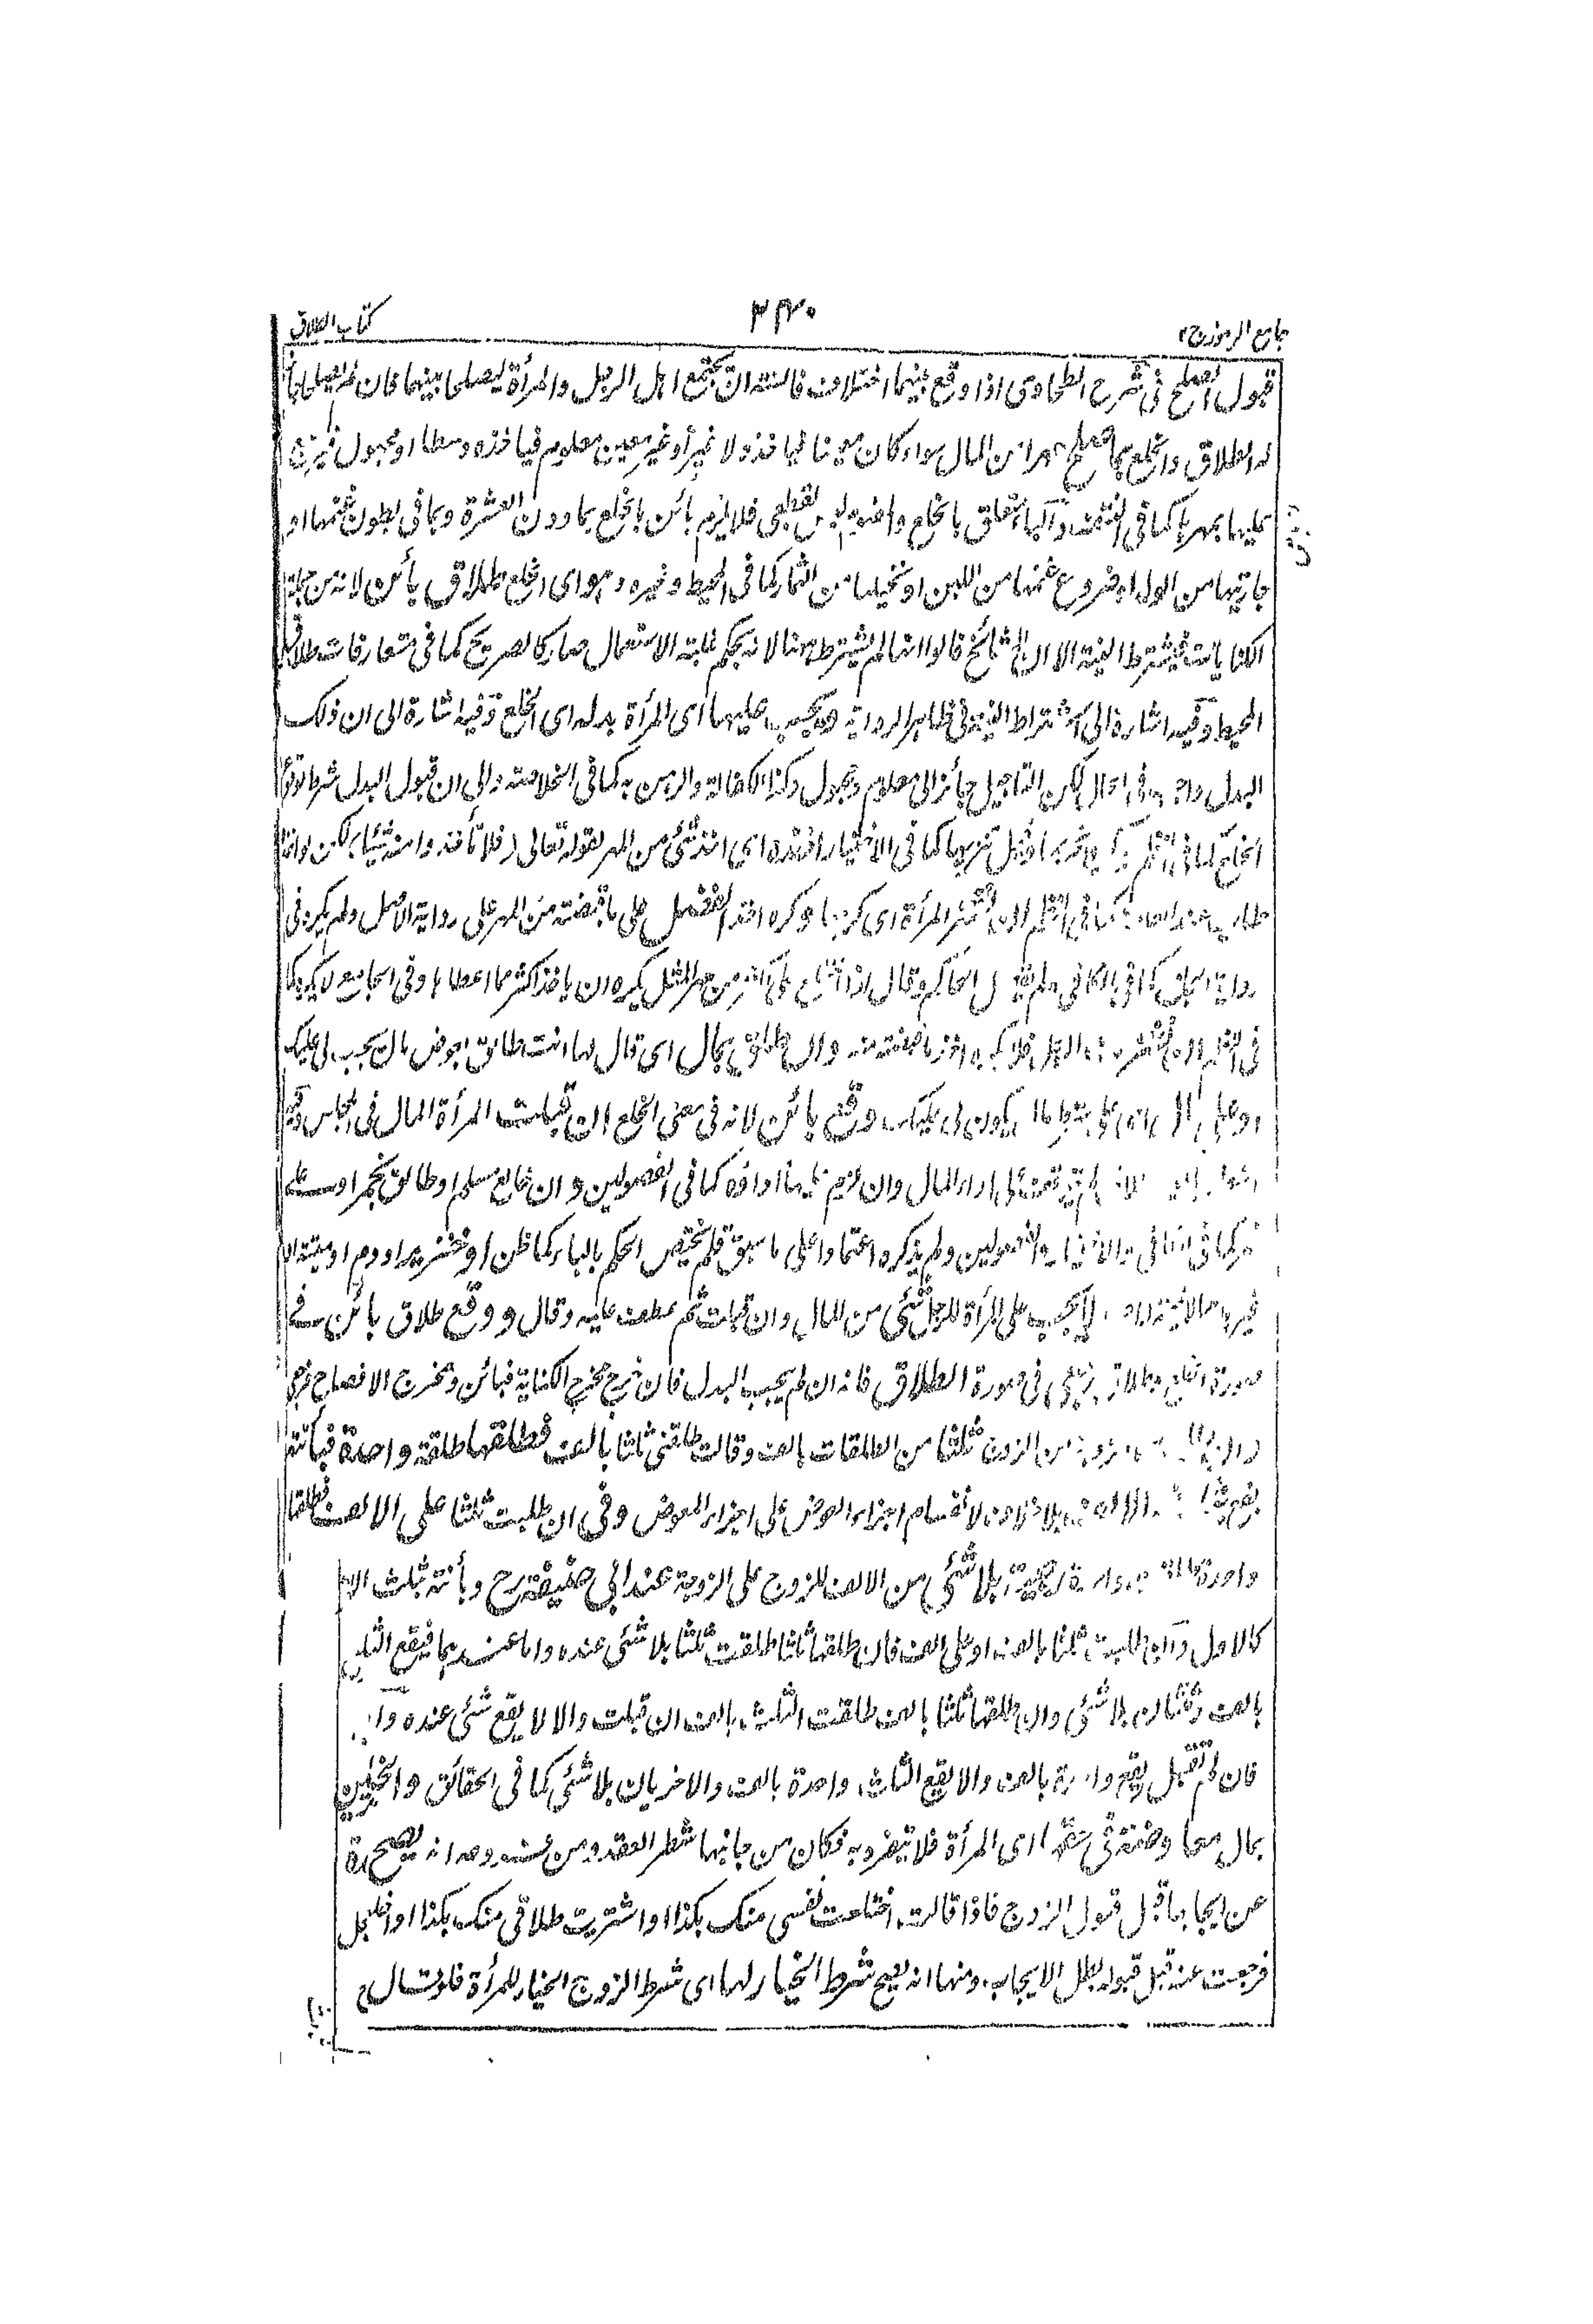 جامع الرموز ج ٢
٣٤٠
كتاب الطلاق
قبول الصلح فى شرح الطحاوى اذا وقع بينهما اختلاف فالسنة ان يجتمع اهل الرجل والمرأة ليصلحا بينهما فان لم يصلحا جاز
له الطلاق والخلع بما يصلح مهرا من المال سواء كان معينا فياخذه لا غير أو غير معين معلوم فياخذه وسطا او مجهول فيرجع
عليها بمهرها كما فى النتف والباء متعلق بالخلع فلا يلزم بائن بالخلع بما دون العشرة وبما فى بطون غنمها او
جاريتها من الولد او ضروع غنمها من اللبن او نخيلها من الثمار كما فى المحيط وغيره وهو اى الخلع طلاق بائن لانه من جملة
الكنايات فيشترط النية الا ان المشائخ قالوا انها لم يشترط ههنا لانه بحكم غلبة الاستعمال صار كالصريح كما فى متعارفات طلاق
المحيط وفيه اشارة الى اشتراط النية فى ظاهر الرواية ويجب عليها اى المرأة بدله اى الخلع وفيه اشارة الى ان ذلك
البدل واجب فى الحال لكن التاجيل جائز الى معلوم ومجهول وكذا الكفالة والرهن به كما فى الخلاصة والى ان قبول البدل شرط لوقوع
الخلع كما فى النظم وكره تحريما وقيل تنزيها كما فى الاختيار اخذه اى اخذ شئ من المهر لقوله تعالى (فلا تأخذوا منه شيئا) لكن لو اخذ
طاب عند العامة كما فى النظم ان نشز المرأة اى كرهها وكره اخذ الفضل على ما قبضته من المهر على رواية الاصل ولم يكره فى
رواية الجامع كما فى الكافى ولم يقل الحاكم وقال اذا اختلع على اكثر من مهر المثل يكره ان ياخذ اكثر مما اعطاها وفى الجامع لا يكره كما
فى النظم وان نشزت الرجل فلا يكره اخذ ما قبضته منه وان طلق بمال اى قال لها انت طالق بعوض مال يجب لى عليك
او على مال اى على شرط مال يكون لى عليك وقع بائن لانه فى معنى الخلع ان قبلت المرأة المال فى المجلس وفيه
لم يتوقف على اداء المال وان لزم عليها اداؤه كما فى الفصولين وان خالع مسلم او طالق بخمر او على
خمر كما فى الكافى والفصولين ولم يذكره اعتمادا على ما سبق فلم يختص الحكم بالباء كما ظن او خنزير او دم او ميتة او
غيرها لا يجب على المرأة للرجل شئ من المال وان قبلت ثم عطف عليه وقال و وقع طلاق بائن فى
صورة الخلع وطلاق رجعى فى صورة الطلاق فانه ان لم يجب البدل فان خرج مخرج الكناية فبائن ومخرج الافصاح فرجعى
من الزوج ثلثا من الطلقات بالف وقالت طلقنى ثلثا بالف فطلقها طلقة واحدة فبائنة
بلا خلاف لانقسام اجزاء العوض على اجزاء المعوض وفى ان طلبت ثلثا على الالف فطلقها
واحدة رجعية بلا شئ من الالف للزوج على الزوجة عند ابى حنيفة رح وبائنة بثلث الالف
كالاول وان طلبت ثلثا بالف او على الف فان طلقها ثلثا طلقت ثلثا بلا شئ عنده واما عندهما فيقع الثلث
بالف وثنتان بلا شئ وان طلقها ثلثا بالف طلقت الثلث بالف ان قبلت والا لا يقع شئ عنده
فان لم تقبل يقع واحدة بالف والا يقع الثلث واحدة بالف والاخريان بلا شئ كما فى الحقائق والخلع
بمال معاوضة فى حقها اى المرأة فلا ينفرد به فكان من جانبها شطر العقد ومن انه يصح رجوعها
عن ايجابها قبل قبول الزوج فاذا قالت اختلعت نفسى منك بكذا او اشتريت طلاقى منك بكذا
فرجعت عنه قبل قبوله بطل الايجاب ومنها انه يصح شرط الخيار لها اى شرط الزوج الخيار للمرأة فلو قال